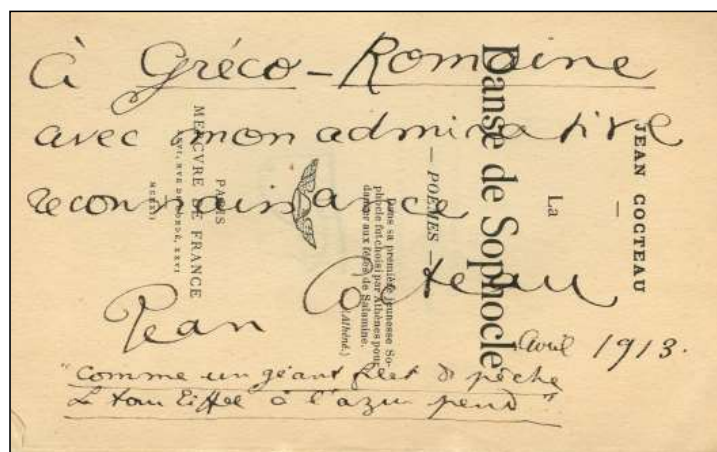 À Gréco-Romaine
avec mon admirative
reconnaissance
Jean Cocteau
avril 1913.
"Comme un géant filet de pêche
La tour Eiffel à l'azur pend"
JEAN COCTEAU
La
Danse de Sophocle
— POÈMES —
Dans sa première jeunesse So-
phocle fut choisi par Athènes pour
danser aux fêtes de Salamine.
(Athéné.)
PARIS
MERCVRE DE FRANCE
XXVI, RVE DE CONDÉ, XXVI